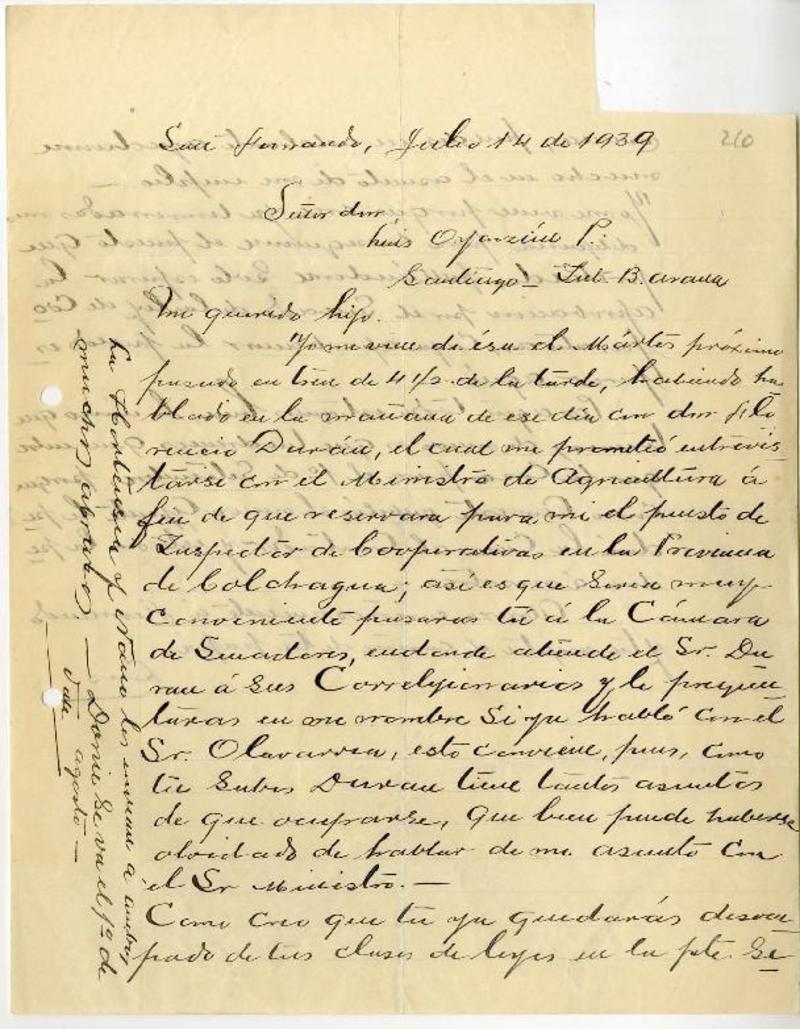 San Fernando, Julio 14 de 1939
210
Señor don
Luis Oyarzún P.
Santiago - Int. B. arana
Mi querido hijo.
Yo me vine de ésa el Mártes próximo
pasado en tren de 4 1/2 de la tarde, habiendo ha
blado en la mañana de ese dia con don Flo
rencio Durán, el cual me prometió entrevis
tarse con el Ministro de Agricultura á
fin de que reservara para mi el puesto de
Inspector de Cooperativas en la Provincia
de Colchagua; asi es que seria muy
conveniente pasaras tú á la Cámara
de Senadores, en donde atiende el Sr. Du
ran á sus Correlijionarios y le pregun
taras en mi nombre si ya habló con el
Sr. Olavarria, esto conviene, pues, como
tu sabes Duran tiene tantos asuntos
de que ocuparse, que bien puede haberse
olvidado de hablar de mi asunto con
el Sr Ministro. —
Como creo que tu ya quedarás desocu
pado de tus clases de leyes en la pte. Se
La Hortensia y Nano les envian a ambos
muchos apretados. — Dario se va el 1º de
agosto —